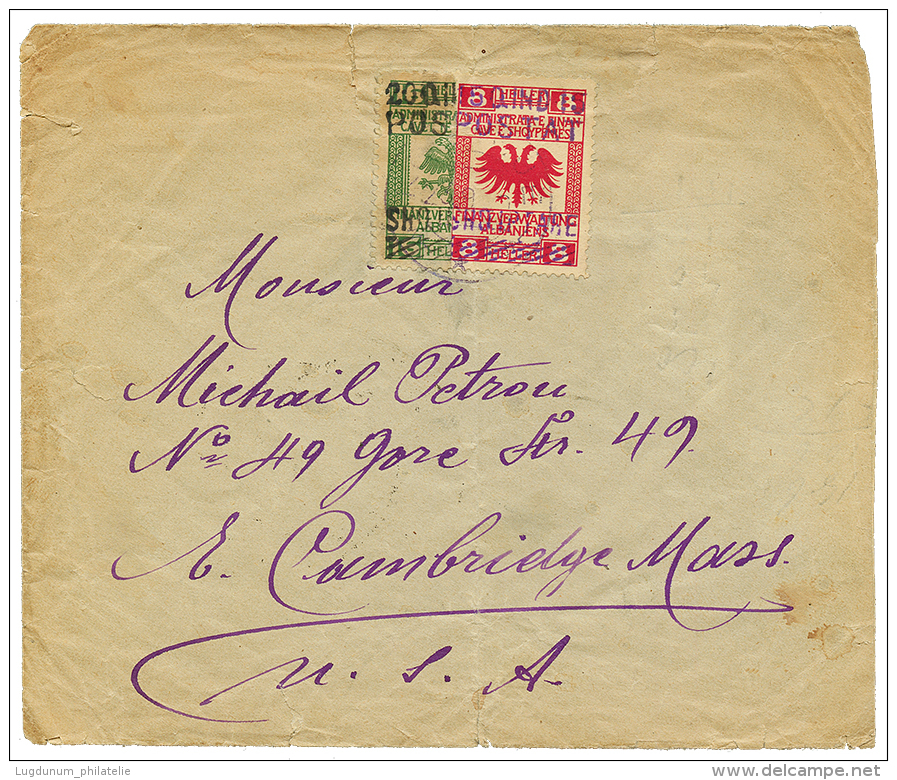 8 HELLER 8
ADMINISTRATA E FINAN
POSTAT
FINANZVERWALTUNG
ALBANIENS
8 HELLER 8
Monsieur
Michail Petrou
No 49 Gore Str. 49
E. Cambridge Mass.
U. S. A.
Lugdunum_philatelie
www.delcampe.net